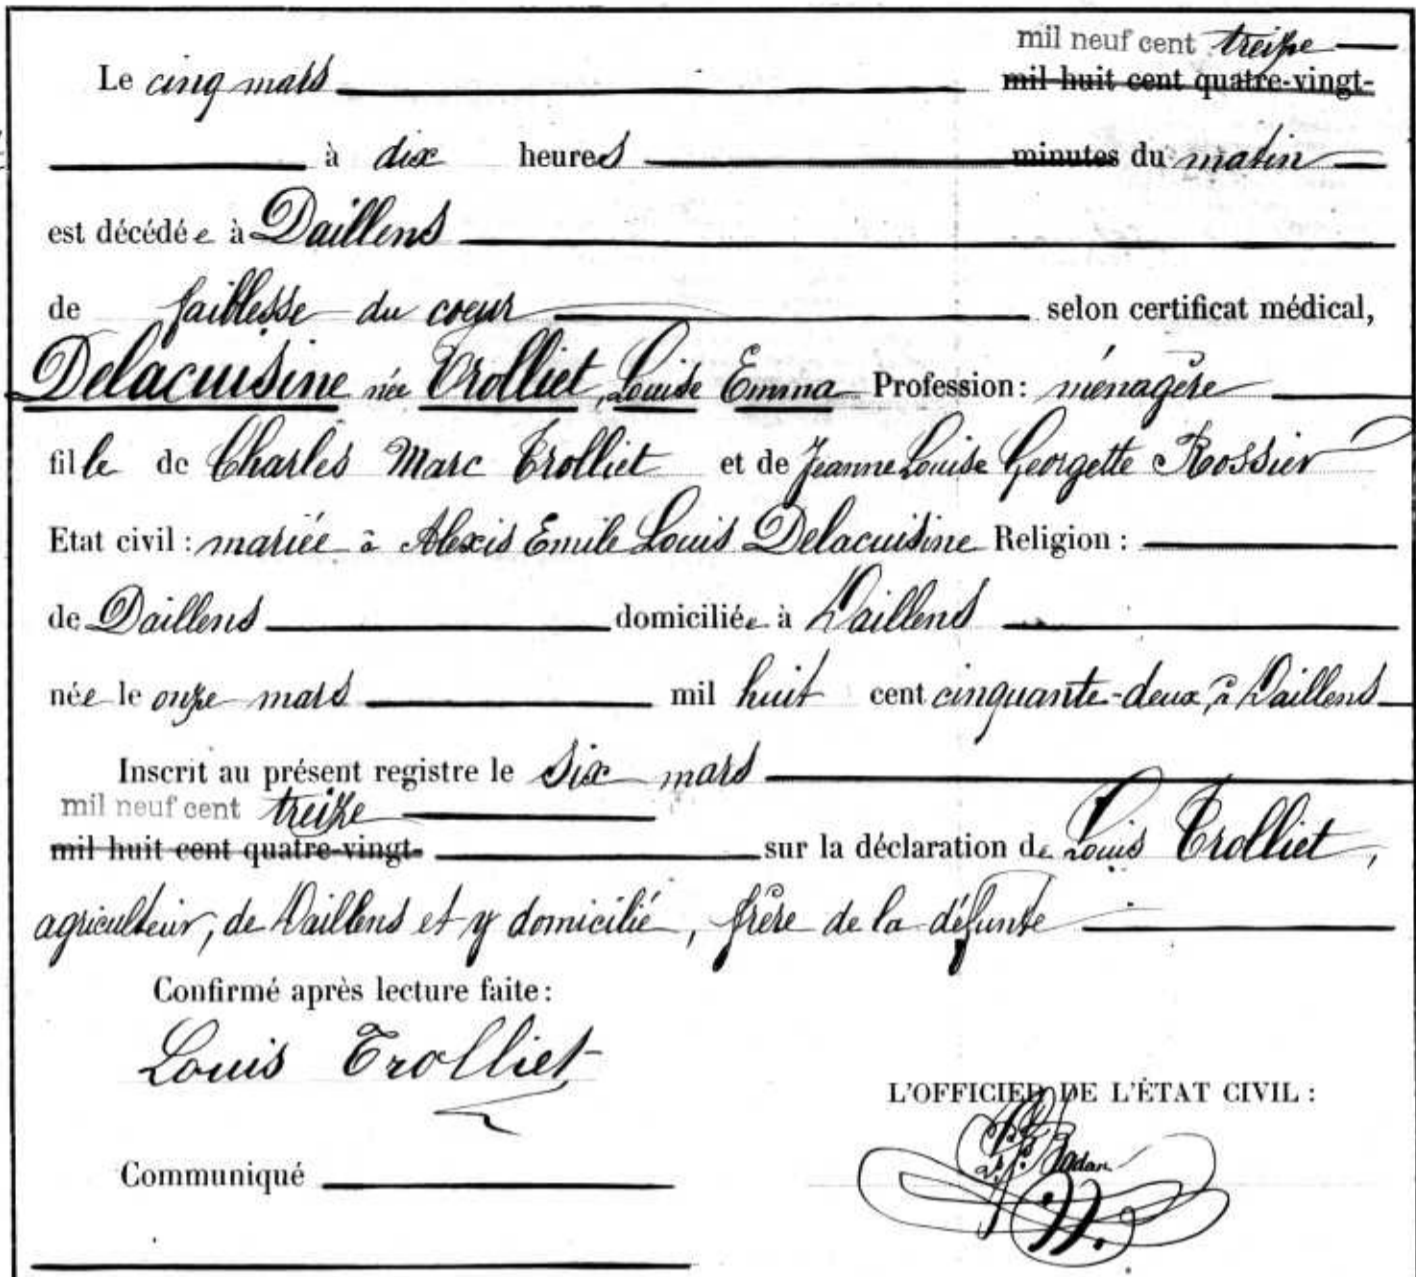 mil neuf cent treize
Le cinq mars mil huit cent quatre-vingt-
à dix heures minutes du matin
est décédée à Daillens
de faiblesse du coeur selon certificat médical,
Delacuisine née Trolliet, Louise Emma Profession: ménagère
fille de Charles Marc Trolliet et de Jeanne Louise Georgette Rossier
Etat civil : mariée à Alexis Emile Louis Delacuisine Religion :
de Daillens domiciliée à Daillens
née le onze mars mil huit cent cinquante-deux, à Daillens
Inscrit au présent registre le six mars
mil neuf cent treize
mil huit cent quatre-vingt- sur la déclaration de Louis Trolliet,
agriculteur, de Daillens et y domicilié, frère de la défunte
Confirmé après lecture faite :
Louis Trolliet
L'OFFICIER DE L'ÉTAT CIVIL :
Communiqué